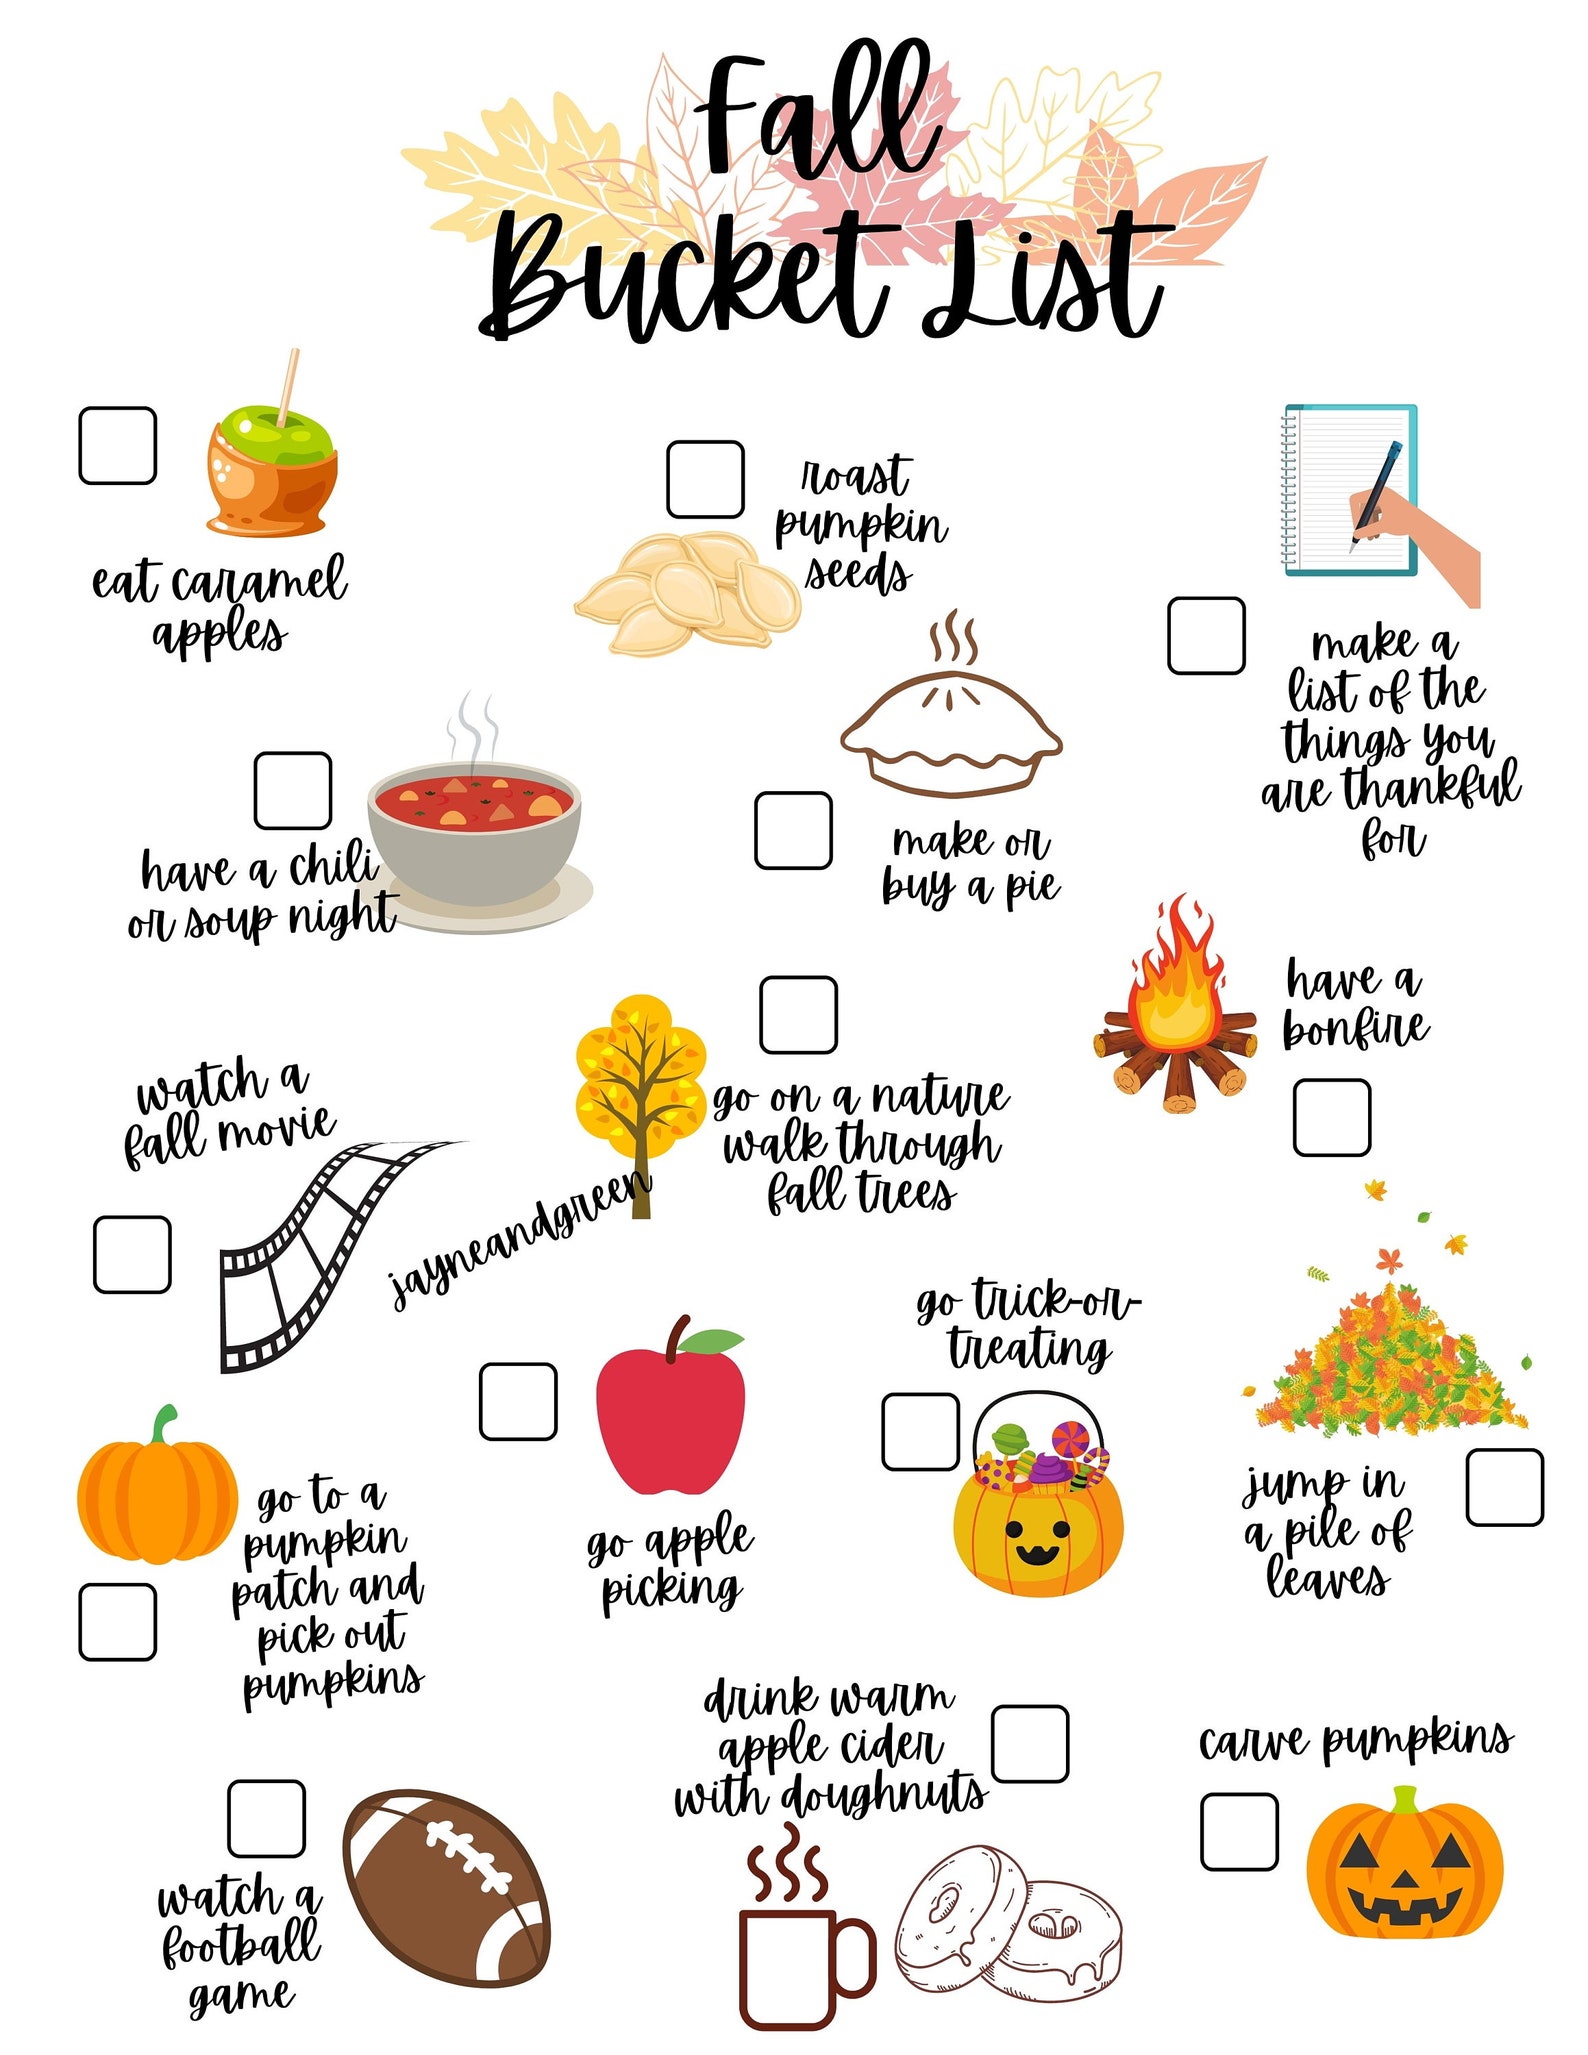 Fall
Bucket List
eat caramel
apples
roast
pumpkin
seeds
make a
list of the
things you
are thankful
for
have a chili
or soup night
make or
buy a pie
have a
bonfire
watch a
fall movie
go on a nature
walk through
fall trees
jayneandgreen
go trick-or-
treating
jump in
a pile of
leaves
go to a
pumpkin
patch and
pick out
pumpkins
go apple
picking
drink warm
apple cider
with doughnuts
carve pumpkins
watch a
football
game